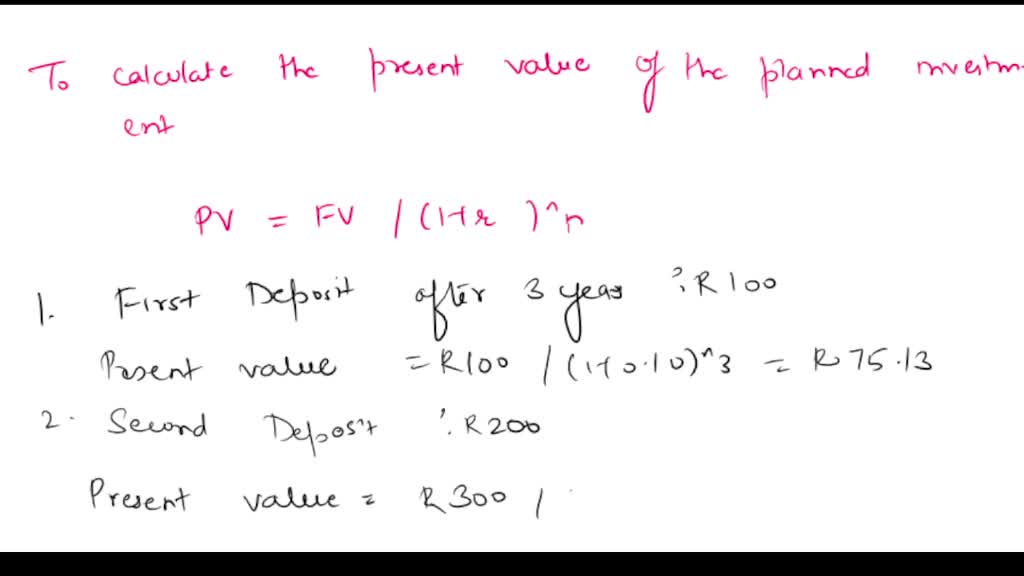 To calculate the present value of the planned investm-
ent
PV = FV / (1+r)^n
1. First Deposit after 3 years : R100
Present value = R100 / (1+0.10)^3 = R75.13
2. Second Deposit : R200
Present value = R300 /